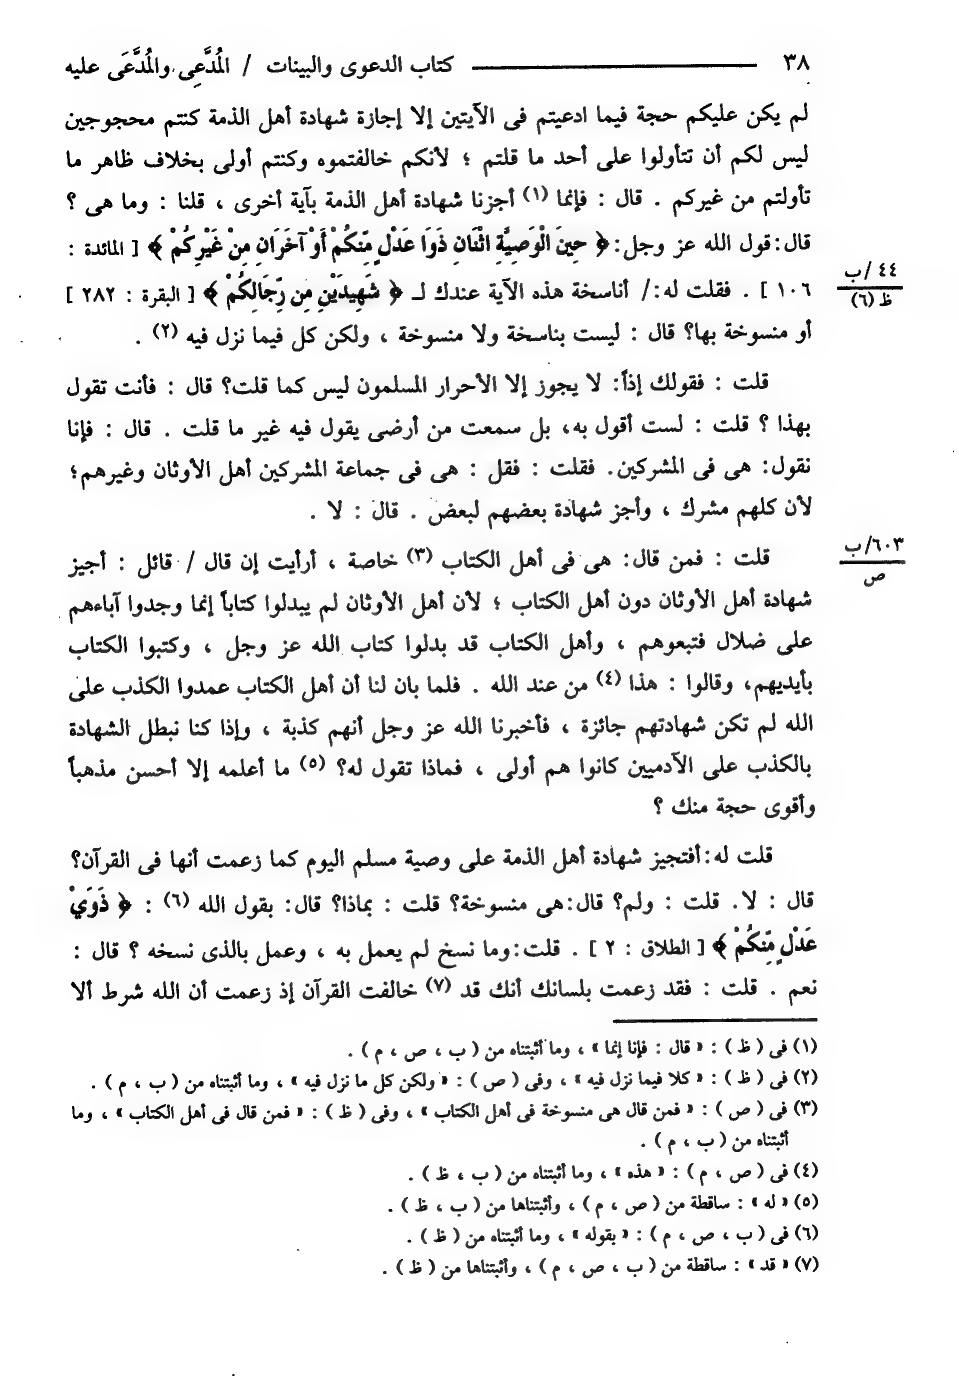 ٣٨ ــــــــــــــــ كتاب الدعوى والبينات / المُدَّعِى والمُدَّعَى عليه
لم يكن عليكم حجة فيما ادعيتم فى الآيتين إلا إجازة شهادة أهل الذمة كنتم محجوجين
ليس لكم أن تتأولوا على أحد ما قلتم ؛ لأنكم خالفتموه وكنتم أولى بخلاف ظاهر ما
تأولتم من غيركم . قال : فإنما (١) أجزنا شهادة أهل الذمة بآية أخرى ، قلنا : وما هى ؟
قال: قول الله عز وجل: ﴿ حِينَ الْوَصِيَّةِ اثْنَانِ ذَوَا عَدْلٍ مِّنكُمْ أَوْ آخَرَانِ مِنْ غَيْرِكُمْ ﴾ [ المائدة :
١٠٦ ] . فقلت له: / أناسخة هذه الآية عندك لـ ﴿ شَهِيدَيْنِ مِن رِّجَالِكُمْ ﴾ [ البقرة : ٢٨٢ ]
٤٤ /ب
ظ (٦)
أو منسوخة بها؟ قال : ليست بناسخة ولا منسوخة ، ولكن كل فيما نزل فيه (٢) .
قلت : فقولك إذاً: لا يجوز إلا الأحرار المسلمون ليس كما قلت؟ قال : فأنت تقول
بهذا ؟ قلت : لست أقول به، بل سمعت من أرضى يقول فيه غير ما قلت . قال : فإنا
نقول: هى فى المشركين. فقلت : فقل : هى فى جماعة المشركين أهل الأوثان وغيرهم؛
لأن كلهم مشرك ، وأجز شهادة بعضهم لبعض . قال : لا .
قلت : فمن قال: هى فى أهل الكتاب (٣) خاصة ، أرأيت إن قال / قائل : أجيز
٦٠٣/ب
ص
شهادة أهل الأوثان دون أهل الكتاب ؛ لأن أهل الأوثان لم يبدلوا كتاباً إنما وجدوا آباءهم
على ضلال فتبعوهم ، وأهل الكتاب قد بدلوا كتاب الله عز وجل ، وكتبوا الكتاب
بأيديهم، وقالوا : هذا (٤) من عند الله . فلما بان لنا أن أهل الكتاب عمدوا الكذب على
الله لم تكن شهادتهم جائزة ، فأخبرنا الله عز وجل أنهم كذبة ، وإذا كنا نبطل الشهادة
بالكذب على الآدميين كانوا هم أولى ، فماذا تقول له؟ (٥) ما أعلمه إلا أحسن مذهباً
وأقوى حجة منك ؟
قلت له: أفتجيز شهادة أهل الذمة على وصية مسلم اليوم كما زعمت أنها فى القرآن؟
قال : لا. قلت : ولم؟ قال: هى منسوخة؟ قلت : بماذا؟ قال: بقول الله (٦) : ﴿ ذَوَيْ
عَدْلٍ مِّنكُمْ ﴾ [ الطلاق : ٢ ] . قلت: وما نسخ لم يعمل به ، وعمل بالذى نسخه ؟ قال :
نعم . قلت : فقد زعمت بلسانك أنك قد (٧) خالفت القرآن إذ زعمت أن الله شرط ألا
(١) فى ( ظ ) : « قال : فإنا إنما » ، وما أثبتناه من ( ب ، ص ، م ) .
(٢) فى ( ظ ) : « كلا فيما نزل فيه » ، وفى ( ص ) : « ولكن كل ما نزل فيه » ، وما أثبتناه من ( ب ، م ) .
(٣) فى ( ص ) : « فمن قال هى منسوخة فى أهل الكتاب » ، وفى ( ظ ) : « فمن قال فى أهل الكتاب » ، وما
أثبتناه من ( ب ، م ) .
(٤) فى ( ص ، م ) : « هذه » ، وما أثبتناه من ( ب ، ظ ) .
(٥) « له » : ساقطة من ( ص ، م ) ، وأثبتناها من ( ب ، ظ ) .
(٦) فى ( ب ، ص ، م ) : « بقوله » ، وما أثبتناه من ( ظ ) .
(٧) « قد » : ساقطة من ( ب ، ص ، م ) ، وأثبتناها من ( ظ ) .